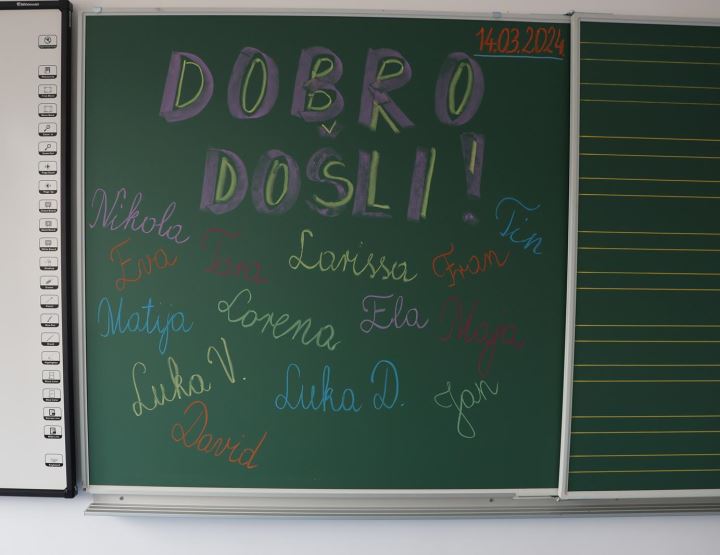 14.03.2024.
DOBRO
DOŠLI!
Nikola
Tin
Eva
Tena
Larissa
Fran
Matija
Lorena
Ela
Maja
Luka V.
Luka D.
Jan
David